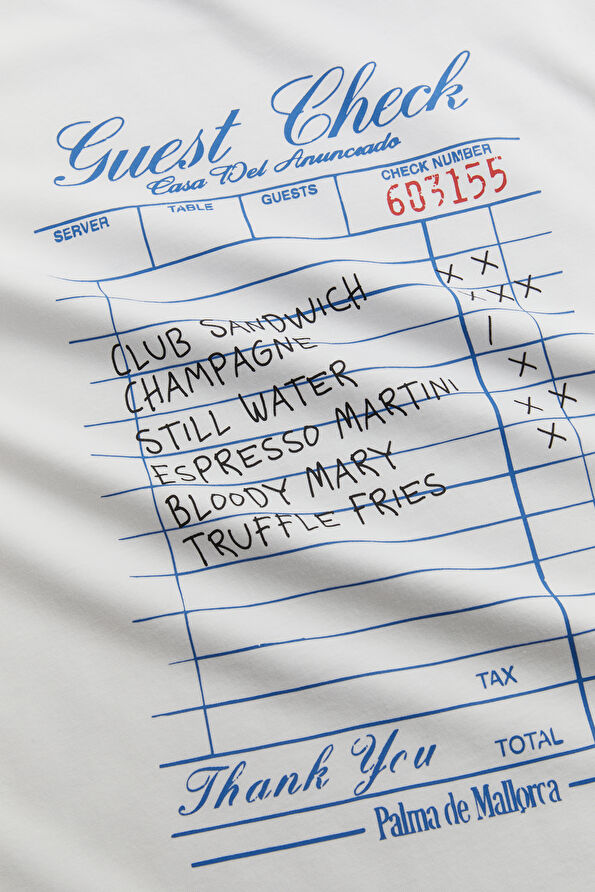 Guest Check
Casa Del Anunciado
SERVER TABLE GUESTS CHECK NUMBER
603155
CLUB SANDWICH X X
CHAMPAGNE I X X
STILL WATER I
ESPRESSO MARTINI X
BLOODY MARY X X
TRUFFLE FRIES X
TAX
Thank You TOTAL
Palma de Mallorca